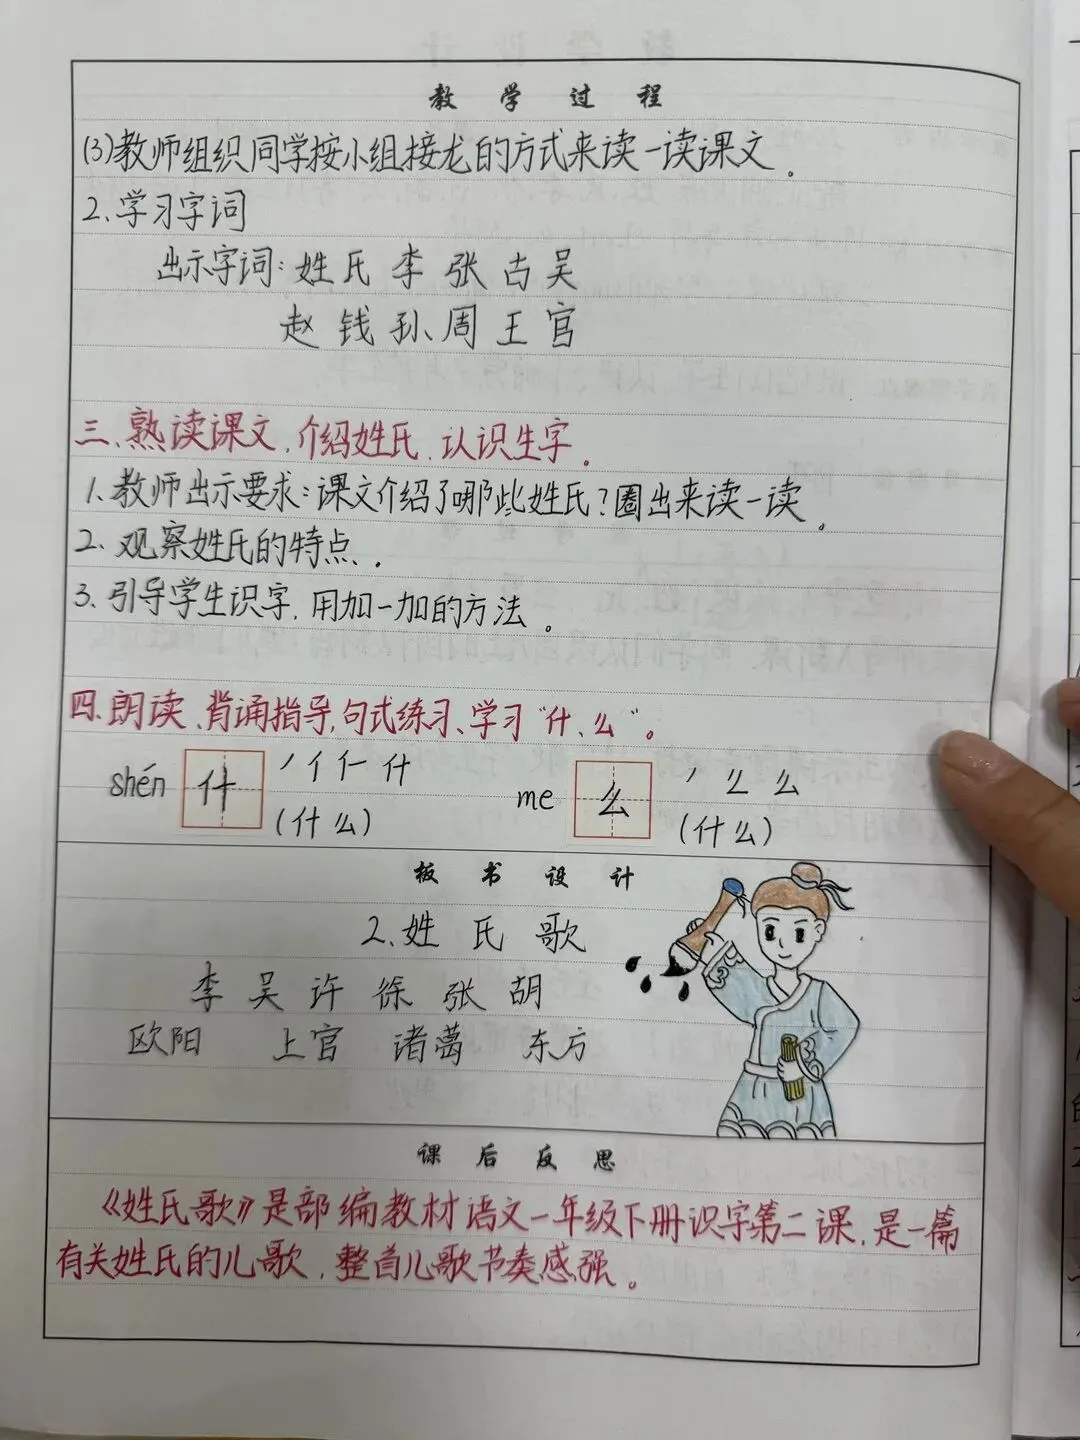 教学过程
(3)教师组织同学按小组接龙的方式来读一读课文。
2.学习字词
出示字词:姓 氏 李 张 古 吴
赵 钱 孙 周 王 官
三、熟读课文,介绍姓氏,认识生字。
1.教师出示要求:课文介绍了哪些姓氏?圈出来读一读。
2.观察姓氏的特点.
3.引导学生识字,用加一加的方法。
四.朗读、背诵指导,句式练习、学习“什、么”。
shén 什 丿亻仁什 me 么 丿 厶 么
(什么) (什么)
板书设计
2.姓 氏 歌
李 吴 许 徐 张 胡
欧阳 上官 诸葛 东方
课后反思
《姓氏歌》是部编教材语文一年级下册识字第二课,是一篇
有关姓氏的儿歌,整首儿歌节奏感强。